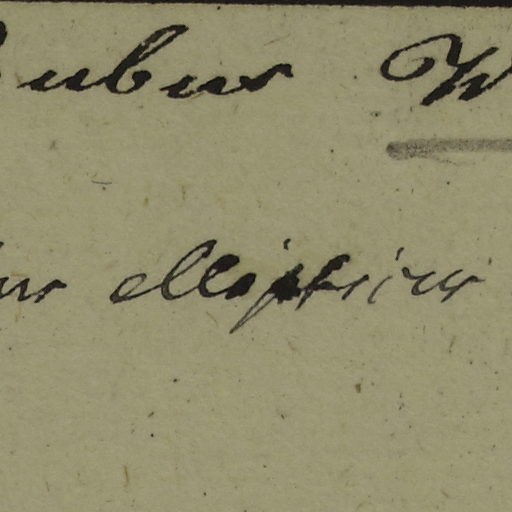 ubus W
us ellipticus